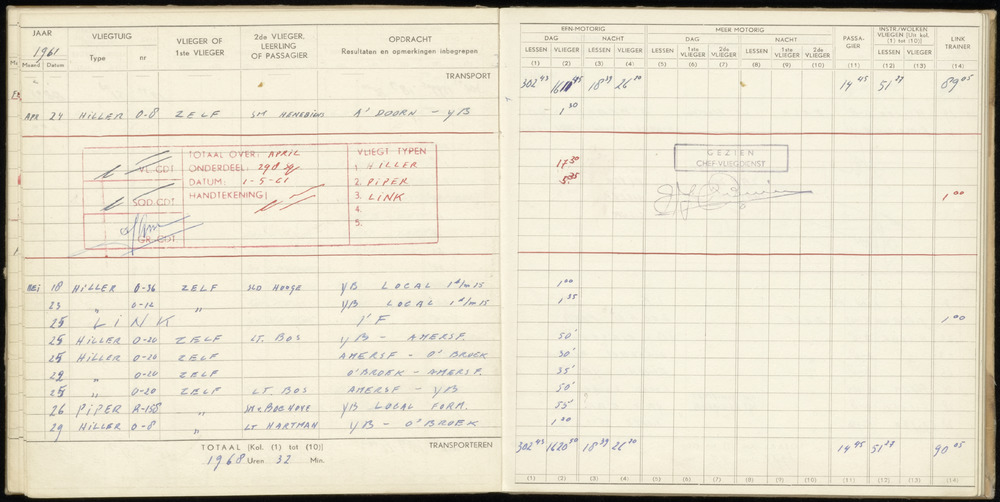 JAAR VLIEGTUIG VLIEGER OF 1ste VLIEGER 2de VLIEGER, LEERLING OF PASSAGIER OPDRACHT Resultaten en opmerkingen inbegrepen
1961
Maand Datum Type nr
TRANSPORT
APR 24 HILLER O-8 ZELF A' DOORN - YB
VL.CDT
SQD.CDT
GR.CDT
TOTAAL OVER: APRIL
ONDERDEEL: 298 sq
DATUM: 1-5-61
HANDTEKENING
VLIEGT TYPEN
1. HILLER
2. PIPER
3. LINK
4.
5.
MEI 18 HILLER O-36 ZELF HOOGE YB LOCAL 1st/m 15
23 " O-12 " YB LOCAL 1st/m 15
25 LINK I'F
25 HILLER O-20 ZELF LT. BOS YB - AMERSF.
25 HILLER O-20 ZELF AMERSF - O'BROEK
29 " O-20 ZELF O'BROEK - AMERSF.
25 " O-20 ZELF LT. BOS AMERSF - YB
26 PIPER R-158 " YB LOCAL FORM.
29 HILLER O-8 " LT HARTMAN YB - O'BROEK
TOTAAL [Kol. (1) tot (10)] TRANSPORTEREN
1968 Uren 32 Min.
EEN-MOTORIG MEER MOTORIG PASSA-GIER INSTR./WOLKEN VLIEGEN [Uit kol. (1) tot (10)] LINK TRAINER
DAG NACHT DAG NACHT
LESSEN VLIEGER LESSEN VLIEGER LESSEN 1ste VLIEGER 2de VLIEGER LESSEN 1ste VLIEGER 2de VLIEGER LESSEN VLIEGER
(1) (2) (3) (4) (5) (6) (7) (8) (9) (10) (11) (12) (13) (14)
302 43 18 39 26 20 14 45 51 27 89 05
1 30
GEZIEN
CHEF-VLIEGDIENST
17 30
5 35
1 00
1 00
1 35
1 00
50'
30'
35'
50'
55'
1 20
302 43 1620 50 18 39 26 20 14 45 51 27 90 05
(1) (2) (3) (4) (5) (6) (7) (8) (9) (10) (11) (12) (13) (14)